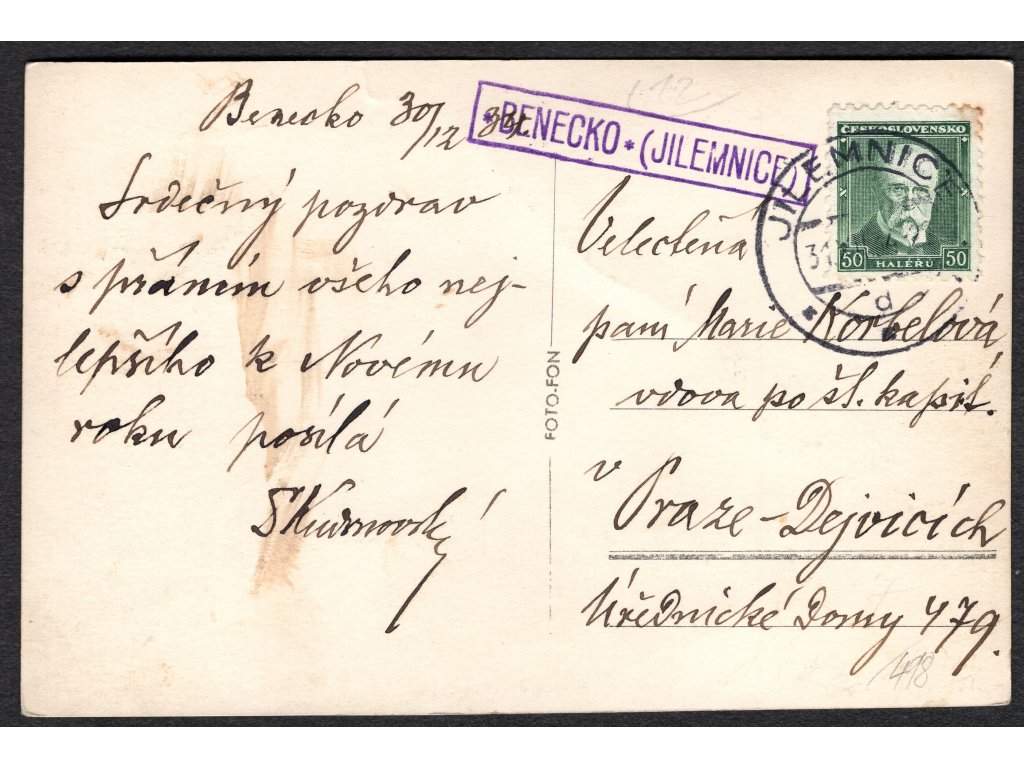 Benecko 30/12
*BENECKO * (JILEMNICE)
12
Srdečný pozdrav
s přáním všeho nej-
lepšího k Novému
roku posílá
FOTO-FON
ČESKOSLOVENSKO
50 HALÉŘŮ 50
JILEMNICE
31
d
Velectěná
paní Marie Korbelová,
vdova po št. kapit.
v
Praze-Dejvicích
Úřednické Domy 479.
418